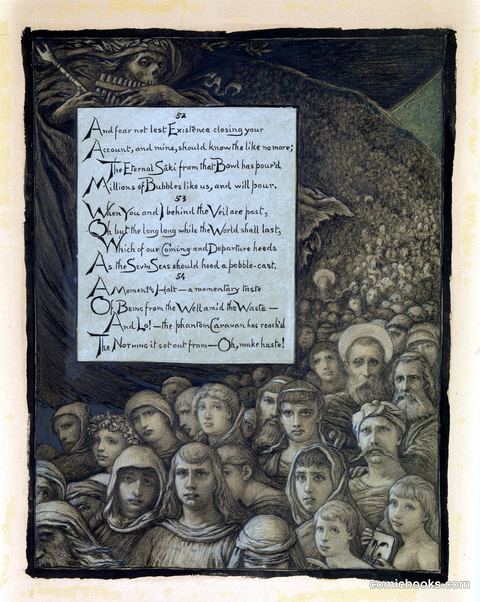 52
And fear not lest Existence closing your
Account, and mine, should know the like no more;
The Eternal Sákí from that Bowl has pour'd
Millions of Bubbles like us, and will pour.
53
When You and I behind the Veil are past,
Oh but the long long while the World shall last,
Which of our Coming and Departure heeds
As the Sev'n Seas should heed a pebble-cast.
54
A Moment's Halt—a momentary taste
Of Being from the Well amid the Waste—
And Lo!—the phantom Caravan has reach'd
The Nothing it set out from—Oh, make haste!
comicbooks.com